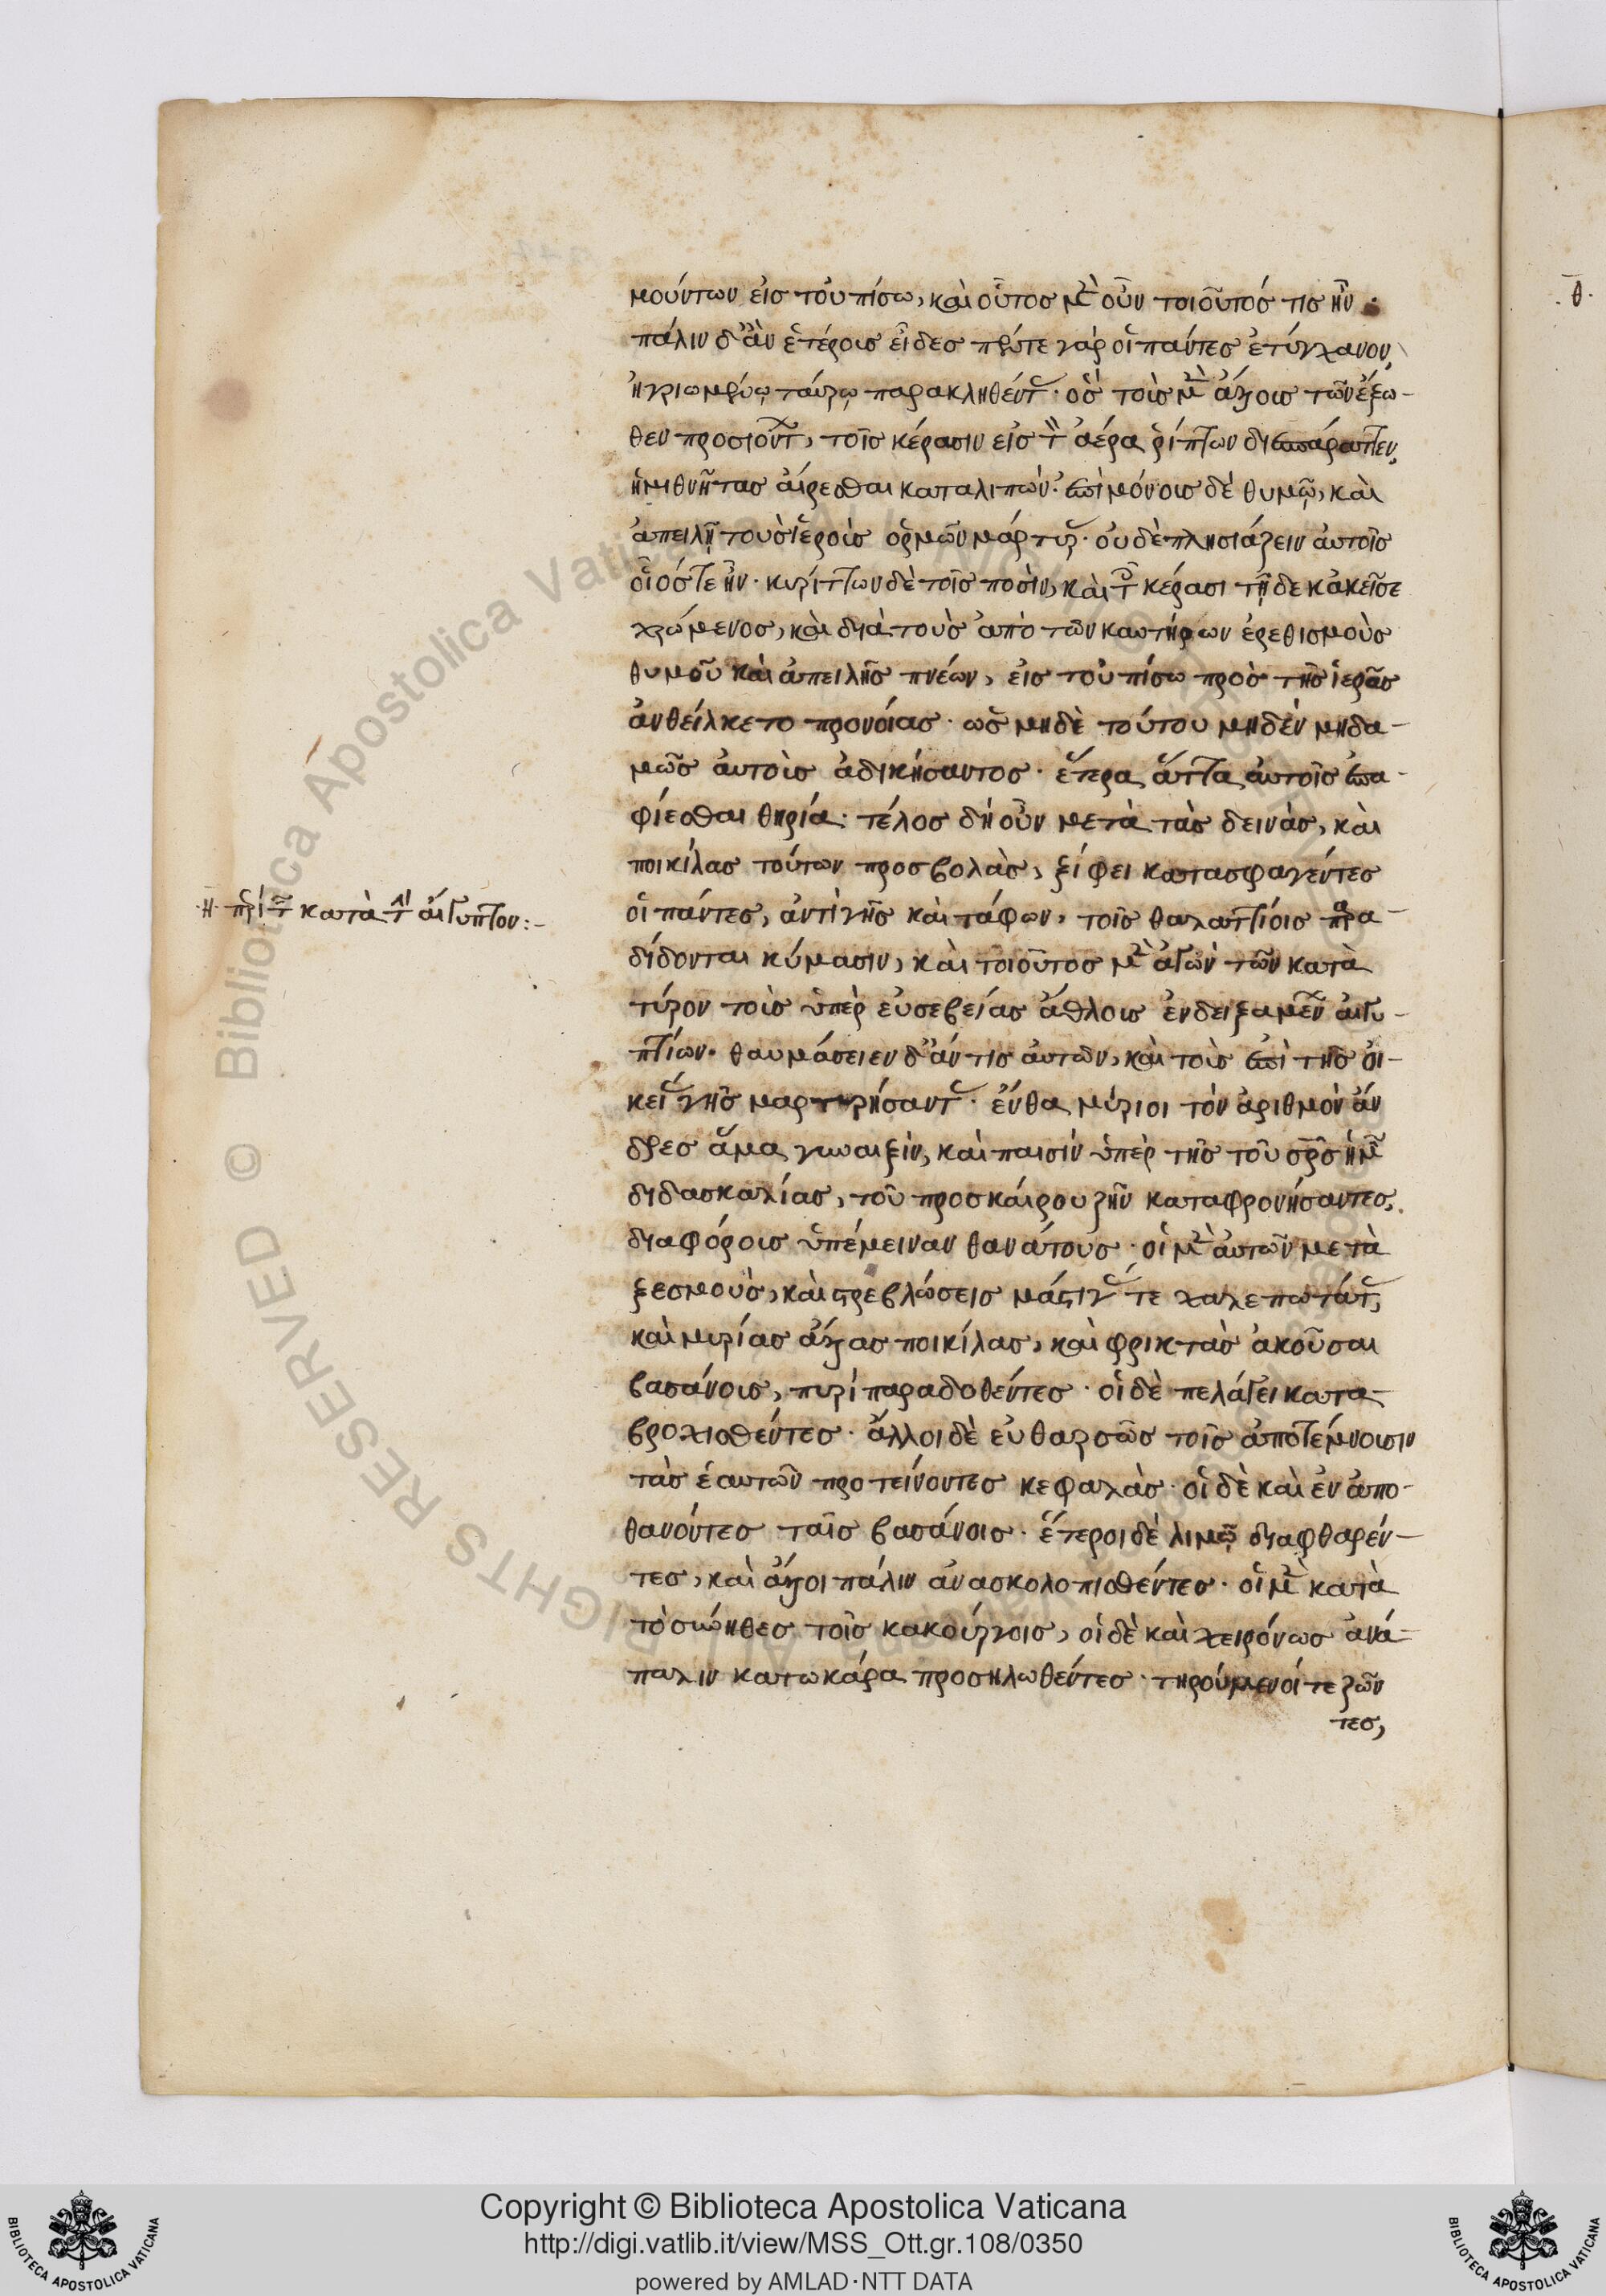 μούντων εἰς τοὐπίσω, καὶ οὗτος μὲν οὖν τοιοῦτός τις ἦν.
πάλιν δ' ἂν ἑτέροις εἶδες πέντε γὰρ οἱ πάντες ἐτύγχανον,
ἠγριωμένῳ ταύρῳ παρακληθέντας· ὃς τοὺς μὲν ἄλλους τῶν ἔξω-
θεν προσιόντων, τοῖς κέρασιν εἰς τὸν ἀέρα ῥίπτων διεσπάραττεν,
ἡμιθνῆτας αἴρεσθαι καταλιπών· ἐπὶ μόνοις δὲ θυμῷ, καὶ
ἀπειλῇ τοὺς ἱεροὺς ὁρμῶν μάρτυρας· οὐδὲ πλησιάζειν αὐτοῖς
οἷός τε ἦν· κυρίττων δὲ τοῖς ποσὶν, καὶ τοῖς κέρασι τῇδε κἀκεῖσε
χρώμενος, καὶ διὰ τοὺς ἀπὸ τῶν καυτήρων ἐρεθισμοὺς
θυμοῦ καὶ ἀπειλῆς πνέων, εἰς τοὐπίσω πρὸς τῆς ἱερᾶς
ἀνθείλκετο προνοίας· ὡς μηδὲ τούτου μηδὲν μηδα-
μῶς αὐτοὺς ἀδικήσαντος· ἕτερα ἄττα αὐτοῖς ἐπα-
φίεσθαι θηρία· τέλος δὴ οὖν μετὰ τὰς δεινὰς, καὶ
ποικίλας τούτων προσβολὰς, ξίφει κατασφαγέντες
οἱ πάντες, ἀντὶ γῆς καὶ τάφων, τοῖς θαλαττίοις παρα-
·η· περὶ τῶν κατὰ τὴν αἴγυπτον:-
δίδονται κύμασιν, καὶ τοιοῦτος μὲν ἀγὼν τῶν κατὰ
τύρον τοὺς ὑπὲρ εὐσεβείας ἄθλους ἐνδειξαμένων αἰγυ-
πτίων· θαυμάσειεν δ' ἄν τις αὐτῶν, καὶ τοὺς ἐπὶ τῆς οἰ-
κείας γῆς μαρτυρήσαντας· ἔνθα μύριοι τὸν ἀριθμὸν ἄν
δρες ἅμα γυναιξὶν, καὶ παισὶν ὑπὲρ τῆς τοῦ σρς ἡμῶν
διδασκαλίας, τοῦ προσκαίρου ζῆν καταφρονήσαντες,
διαφόρους ὑπέμειναν θανάτους· οἱ μὲν αὐτῶν μετὰ
ξεσμοὺς, καὶ στρεβλώσεις μάστιγάς τε χαλεπωτάτας,
καὶ μυρίας ἄλλας ποικίλας, καὶ φρικτὰς ἀκοῦσαι
βασάνους, πυρὶ παραδοθέντες· οἱ δὲ πελάγει κατα-
βροχισθέντες· ἄλλοι δὲ εὐθαρσῶς τοῖς ἀποτέμνουσιν
τὰς ἑαυτῶν προτείνοντες κεφαλὰς· οἱ δὲ καὶ ἐναπο-
θανόντες ταῖς βασάνοις· ἕτεροι δὲ λιμῷ διαφθαρέν-
τες, καὶ ἄλλοι πάλιν ἀνασκολοπισθέντες· οἱ μὲν κατὰ
τὸ σύνηθες τοῖς κακούργοις, οἱ δὲ καὶ χειρόνως ἀνά-
παλιν κατωκάρα προσηλωθέντες· τηρούμενοί τε ζῶν
τες,
·θ·
© Biblioteca Apostolica Vaticana ALL RIGHTS RESERVED
Copyright © Biblioteca Apostolica Vaticana
http://digi.vatlib.it/view/MSS_Ott.gr.108/0350
powered by AMLAD·NTT DATA
BIBLIOTECA APOSTOLICA VATICANA
BIBLIOTECA APOSTOLICA VATICANA